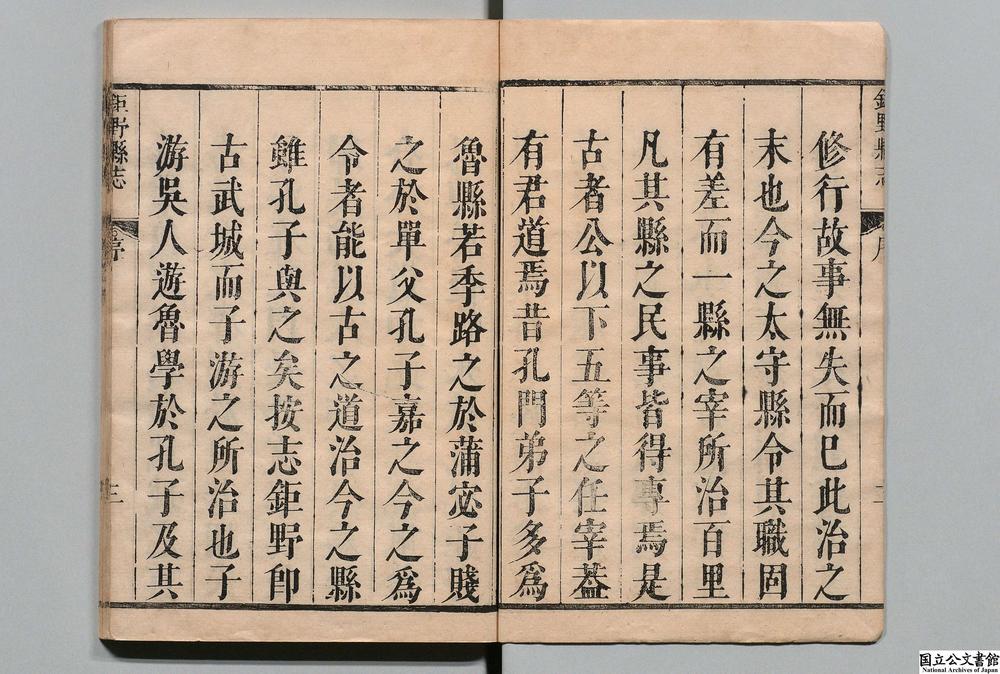 鉅野縣志
序
二
修行故事無失而已此治之
末也今之太守縣令其職固
有差而一縣之宰所治百里
凡其縣之民事皆得專焉是
古者公以下五等之任宰葢
有君道焉昔孔門弟子多爲
魯縣若季路之於蒲宓子賤
之於單父孔子嘉之今之爲
令者能以古之道治今之縣
雖孔子與之矣按志鉅野卽
古武城而子游之所治也子
游吳人遊魯學於孔子及其
鉅野縣志
序
三
国立公文書館
National Archives of Japan